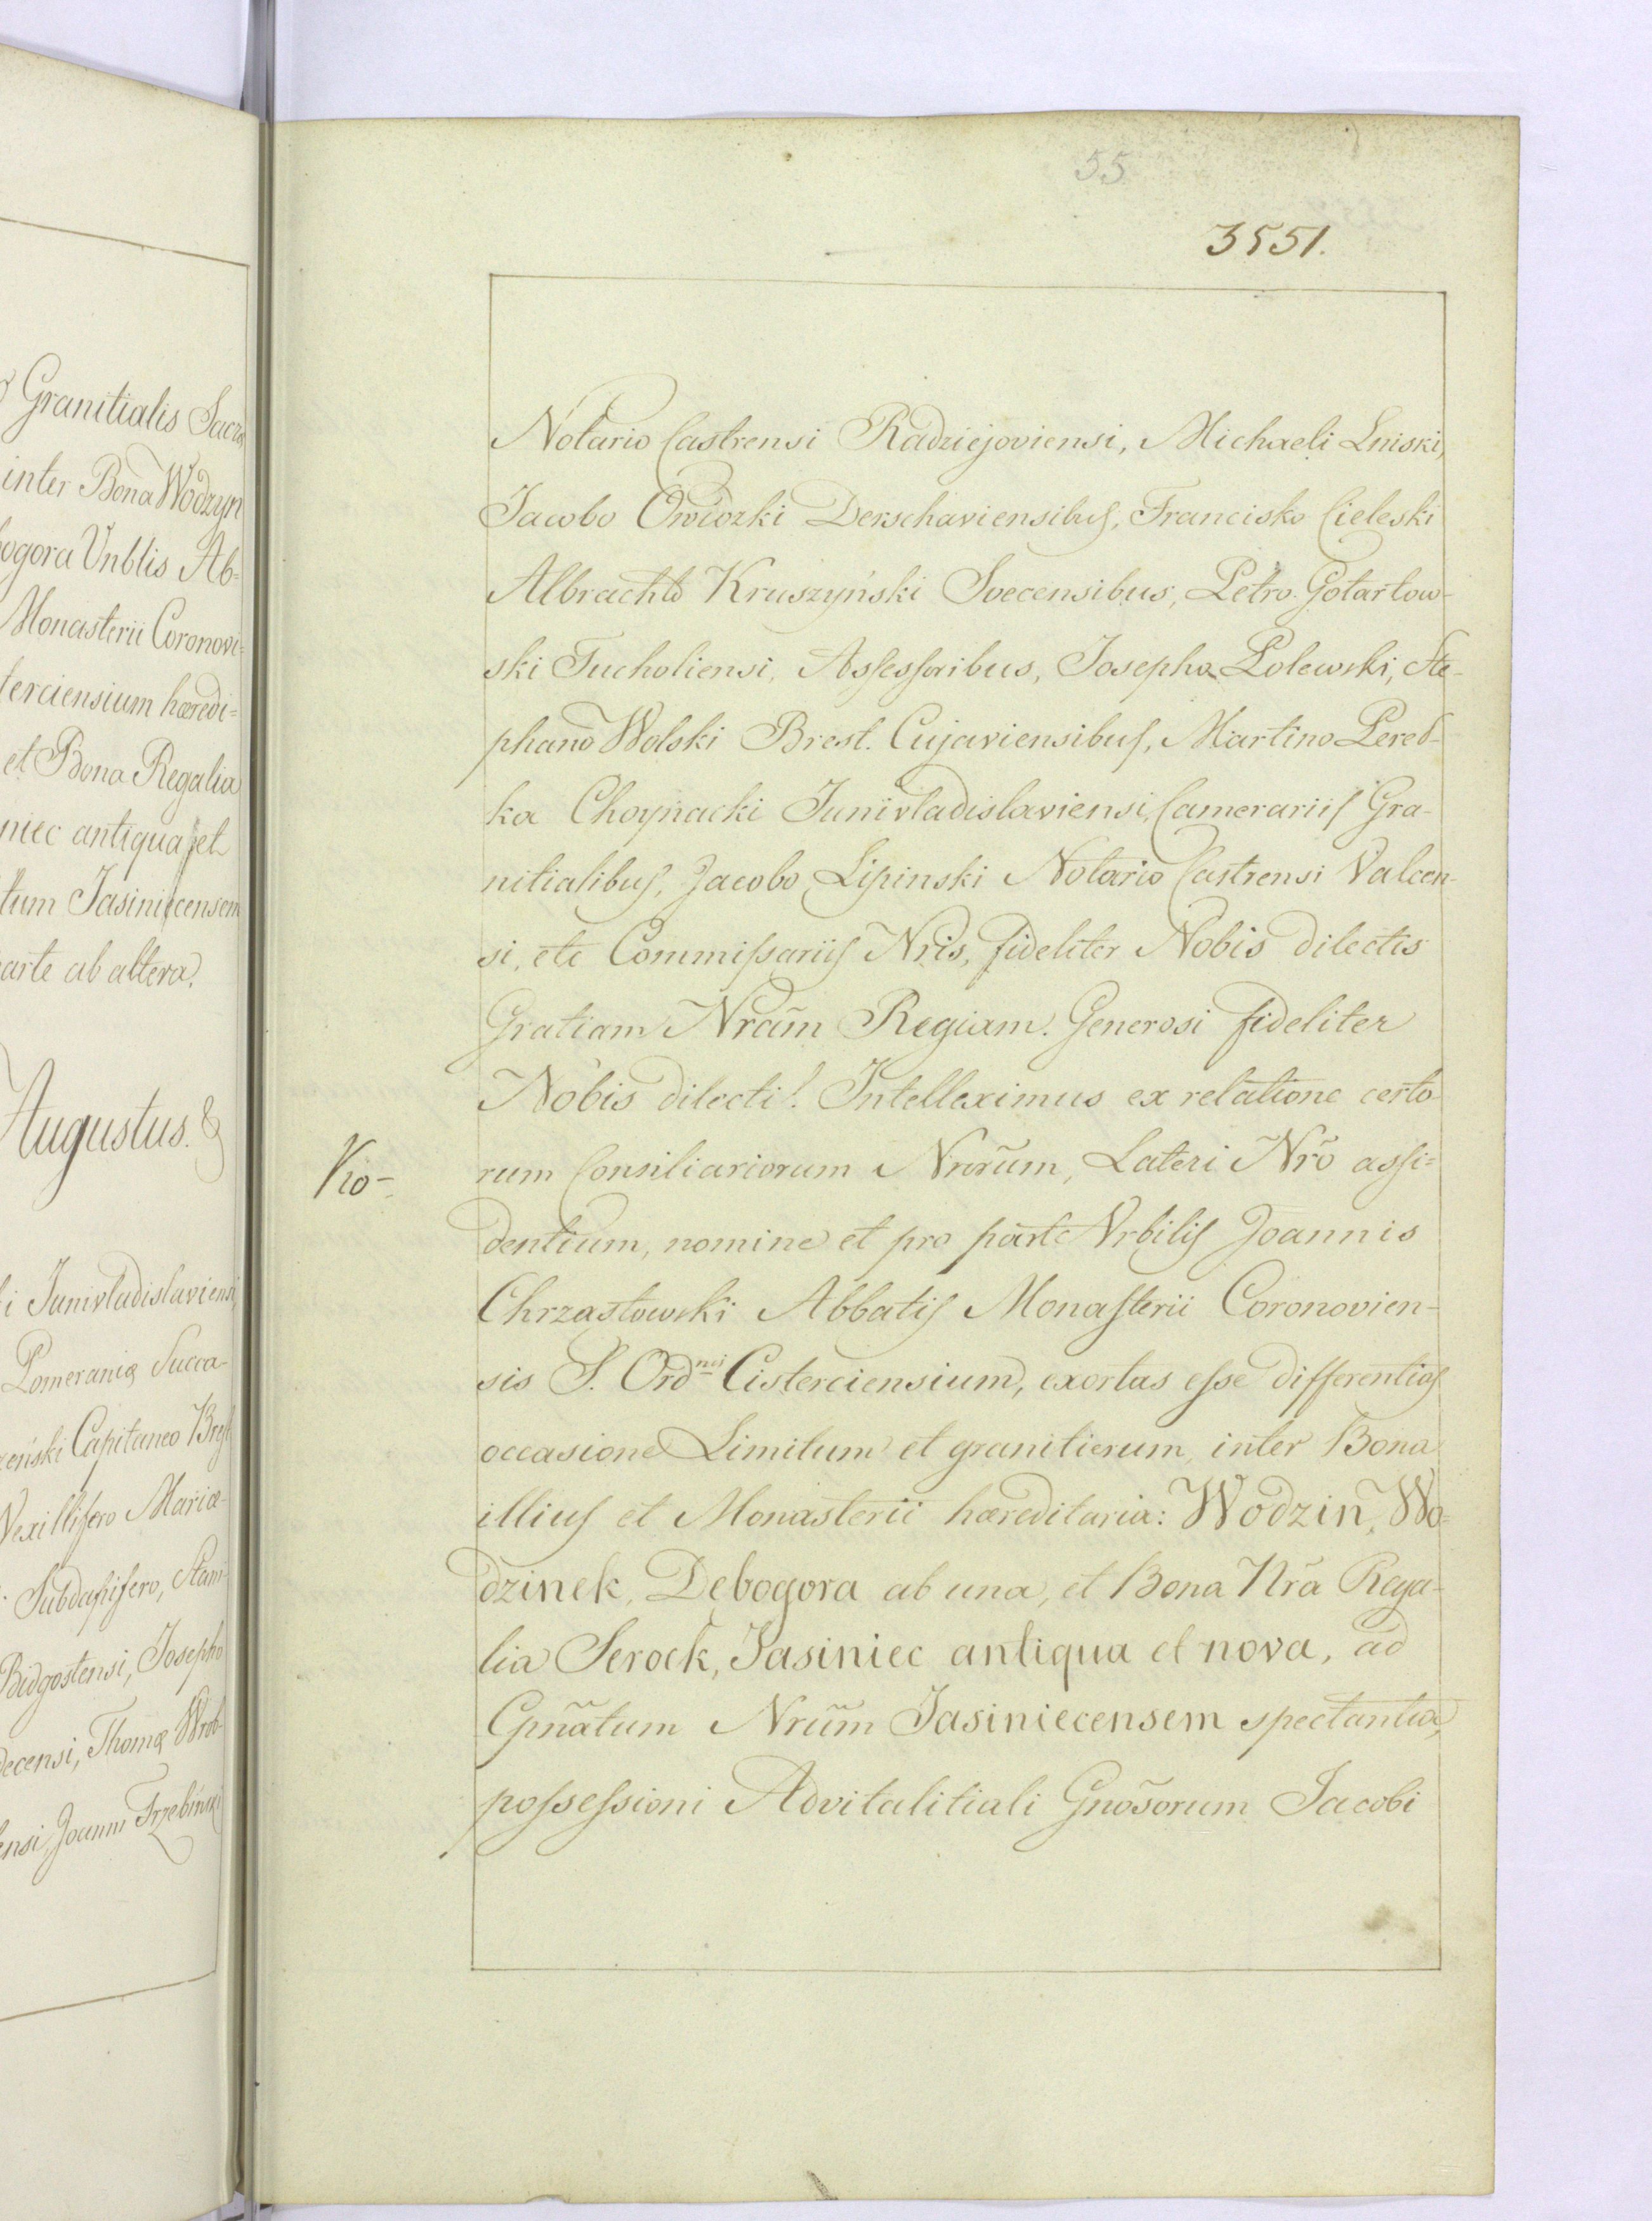 55
3551.
Granitialis Sacra
inter Bona Wodzyn
bogora Vnblis Ab=
Monasterii Coronovi=
terciensium hæredi=
et Bona Regalia
niec antiqua et
tum Jasiniecensem
arte ab altera.
Augustus. &
i Junivladislaviensi,
Pomeraniæ Succa-
Capitaneo Brest
Vexillifero Mariæ-
Subdapifero, Stani-
Bidgostensi, Josepho
decensi, Thomæ Wrob-
ensi, Joanni Trzebinski
Notario Castrensi Radziejoviensi, Michaeli Lniski,
Jacobo Owidzki Derschaviensibus, Francisko Cieleski
Albrachto Kruszyński Svecensibus, Petro Gotartow-
ski Tucholiensi, Assessoribus, Josepho Polewski, Ste-
phano Wolski Brest. Cujaviensibus, Martino Pered-
ka Choynacki Junivladislaviensi, Camerariis Gra-
nitialibus, Jacobo Lipinski Notario Castrensi Valcen-
si, etc Commissariis Nris, fideliter Nobis dilectis
Gratiam Nram̃ Regiam. Generosi fideliter
Nobis dilecti! Intelleximus ex relatione certo-
rum Consiliariorum Nrorum̃, Lateri Nrõ assi=
dentium, nomine et pro parte Vrbilis Joannis
Chrząstowski Abbatis Monasterii Coronovien-
sis S. Ordnis Cisterciensium, exortas esse differentias
occasione Limitum et granitierum, inter Bona
illius et Monasterii hæreditaria: Wodzin, Wo=
dzinek, Debogora ab una, et Bona Nrã Rega-
lia Serock, Jasiniec antiqua et nova, ad
Cpnãtum Nrum̃ Jasiniecensem spectantia,
possessioni Advitalitiali Gnõsorum Jacobi